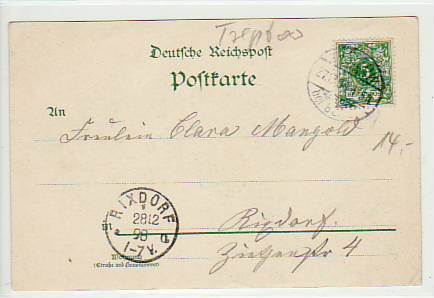 Treptow
Deutsche Reichspost
Postkarte
5
An
Fräulein Clara Mangold
14.-
RIXDORF
28 12
98
1-7V.
e
in
Rixdorf.
Wohnung
(Straße und Hausnummer)
Ziethenstr 4